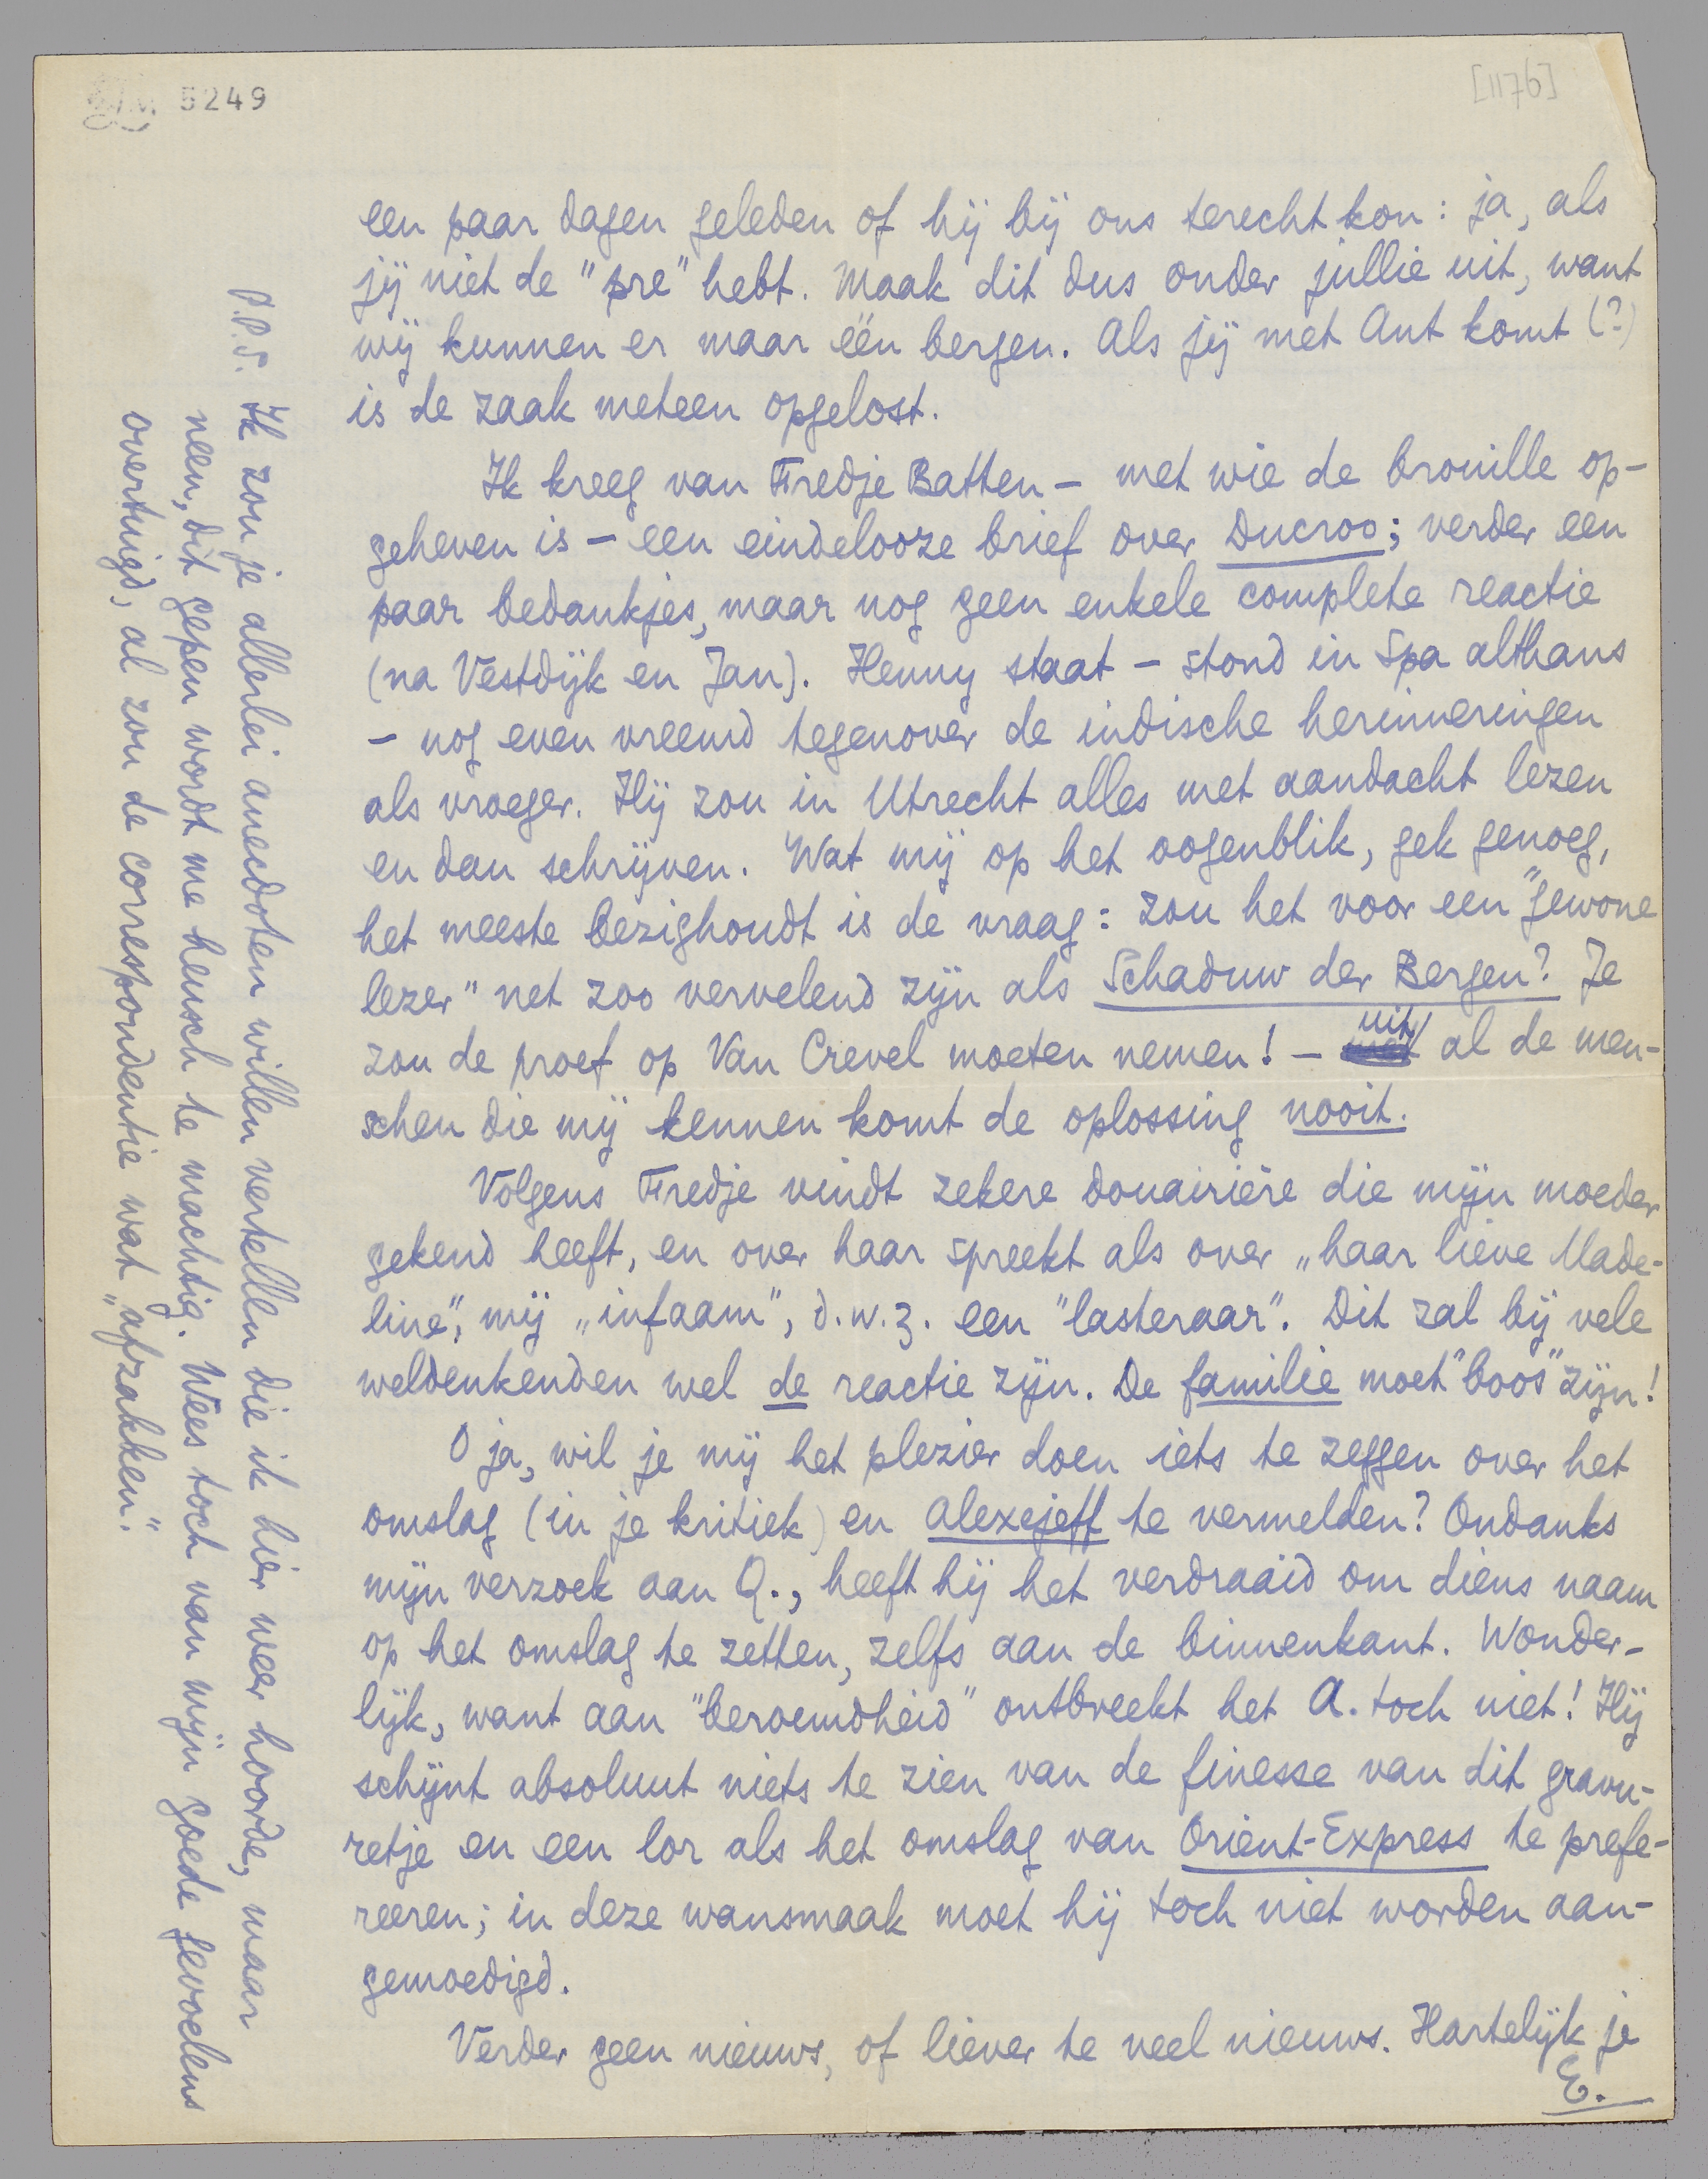 5249
[1176]
een paar dagen geleden of hij bij ons terecht kon: ja, als
jij niet de "pre" hebt. Maak dit dus onder jullie uit, want
wij kunnen er maar één bergen. Als jij met Ant komt (?)
is de zaak meteen opgelost.
Ik kreeg van Fredje Batten – met wie de brouille op-
geheven is – een eindelooze brief over Ducroo; verder een
paar bedankjes, maar nog geen enkele complete reactie
(na Vestdijk en Jan). Henny staat – stond in Spa althans
– nog even vreemd tegenover de indische herinneringen
als vroeger. Hij zou in Utrecht alles met aandacht lezen
en dan schrijven. Wat mij op het oogenblik, gek genoeg,
het meeste bezighoudt is de vraag: zou het voor een "gewone
lezer" net zoo vervelend zijn als Schaduw der Bergen? Je
zou de proef op Van Crevel moeten nemen! – uit al de men-
schen die mij kennen komt de oplossing nooit.
Volgens Fredje vindt zekere douairière die mijn moeder
gekend heeft, en over haar spreekt als over „haar lieve Made-
line", mij „infaam", d.w.z. een "lasteraar". Dit zal bij vele
weldenkenden wel de reactie zijn. De familie moet "boos" zijn!
O ja, wil je mij het plezier doen iets te zeggen over het
omslag (in je kritiek) en Alexejeff te vermelden? Ondanks
mijn verzoek aan Q., heeft hij het verdraaid om diens naam
op het omslag te zetten, zelfs aan de binnenkant. Wonder-
lijk, want aan "beroemdheid" ontbreekt het A. toch niet! Hij
schijnt absoluut niets te zien van de finesse van dit gravu-
retje en een lor als het omslag van Oriënt-Express te prefe-
reeren; in deze wansmaak moet hij toch niet worden aan-
gemoedigd.
Verder geen nieuws, of liever te veel nieuws. Hartelijk je
E.
P.P.S. Ik zou je allerlei anecdoten willen vertellen die ik hier weer hoorde, maar
neen, dit gepen wordt me heusch te machtig. Wees toch van mijn goede gevoelens
overtuigd, al zou de correspondentie wat „afzakken".